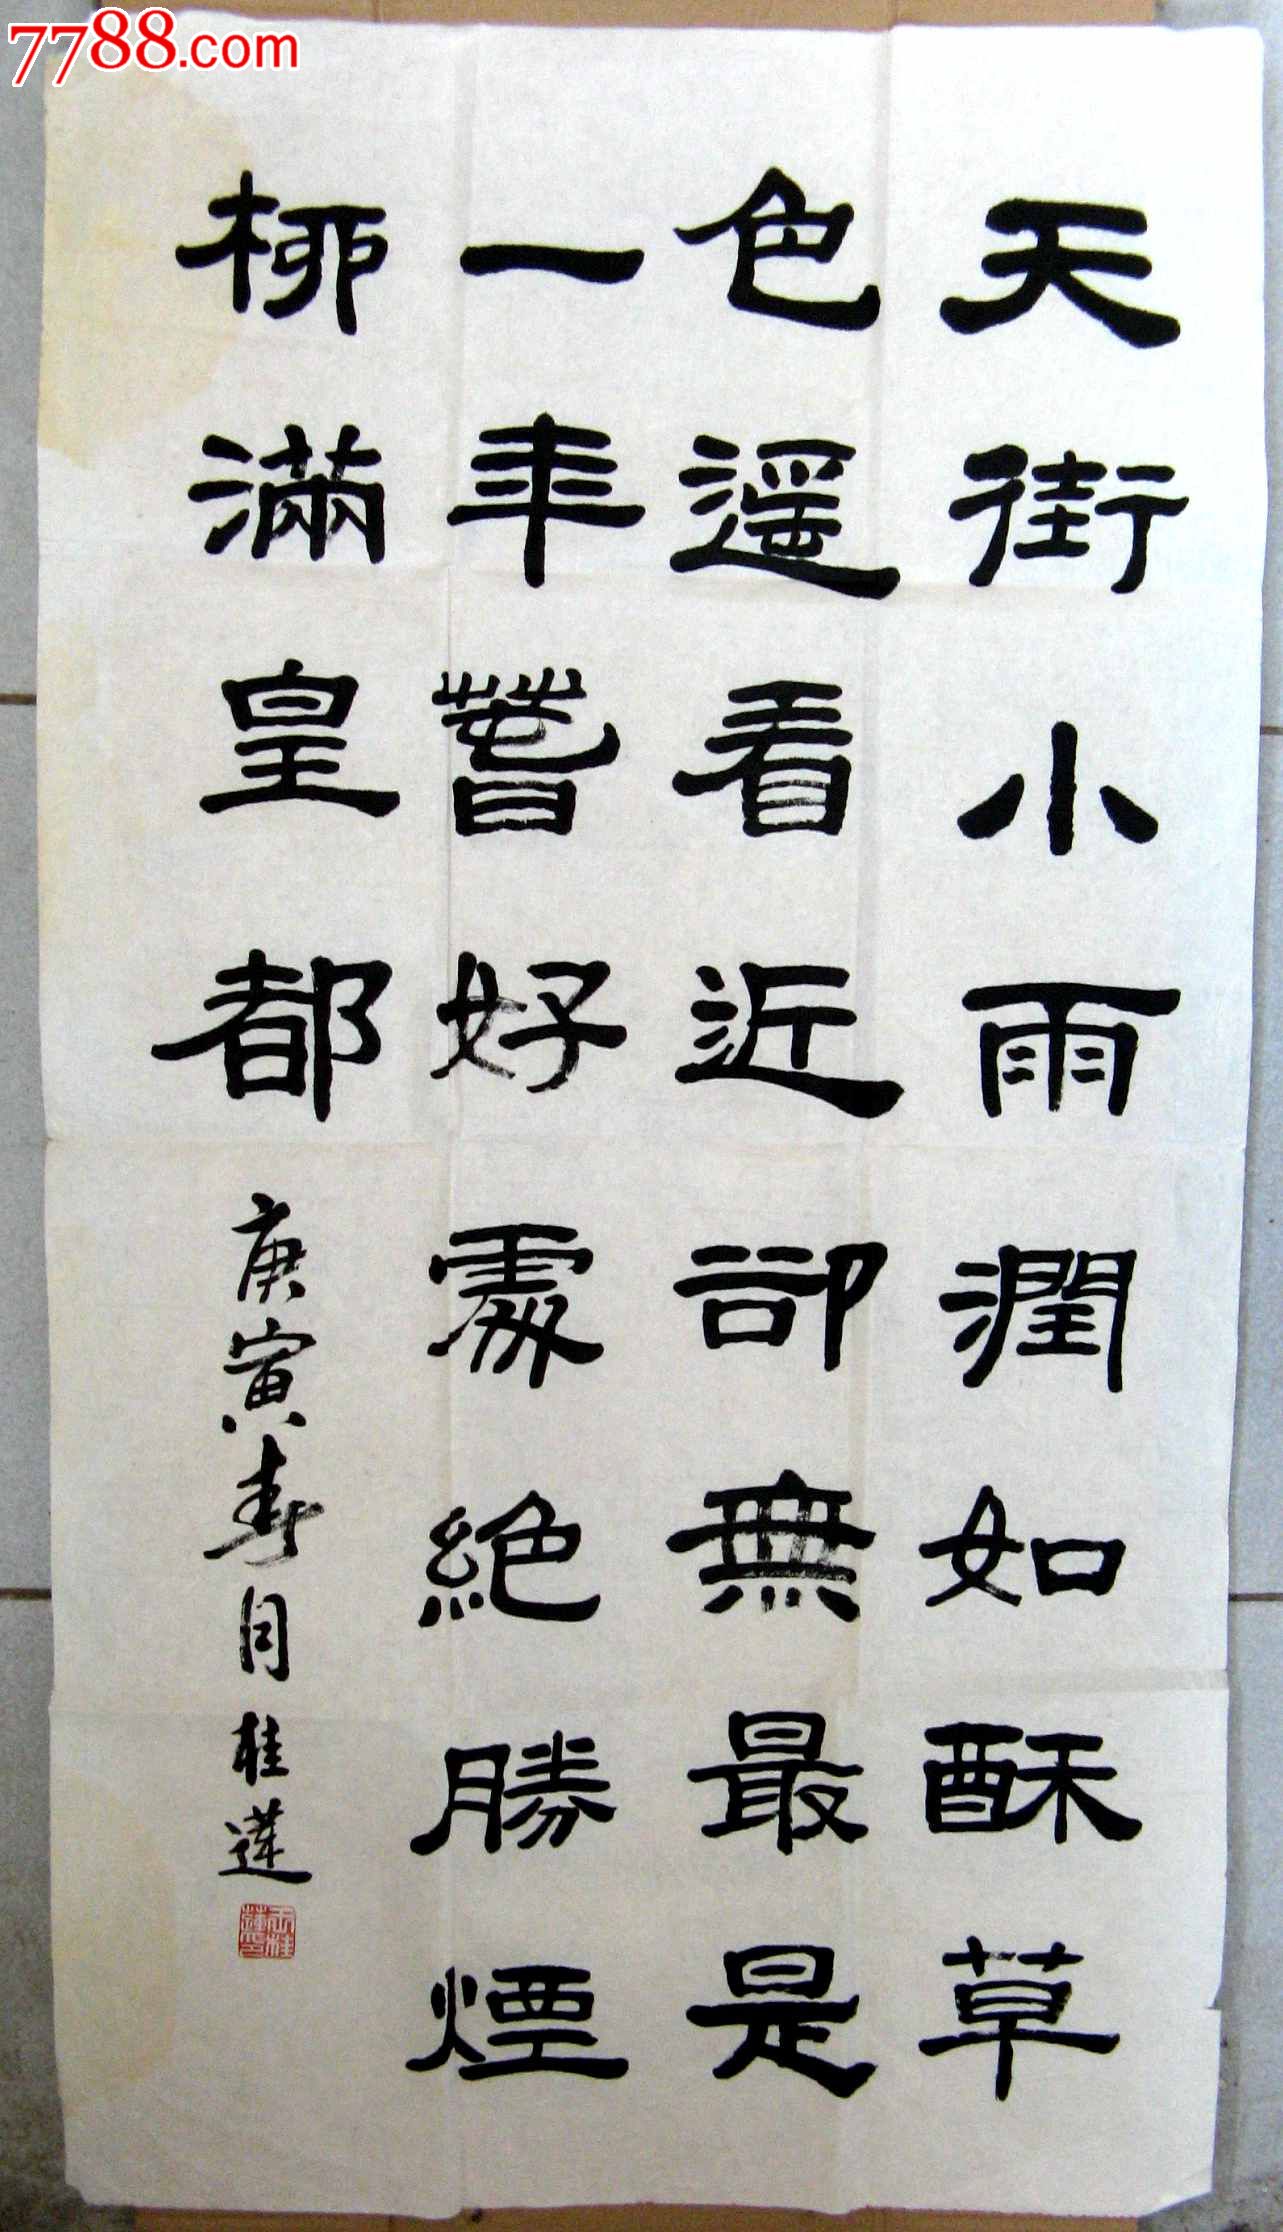 7788.com
天街小雨潤如酥草
色遥看近卻無最是
一年萅好處絕勝煙
柳滿皇都
庚寅春月桂蓮